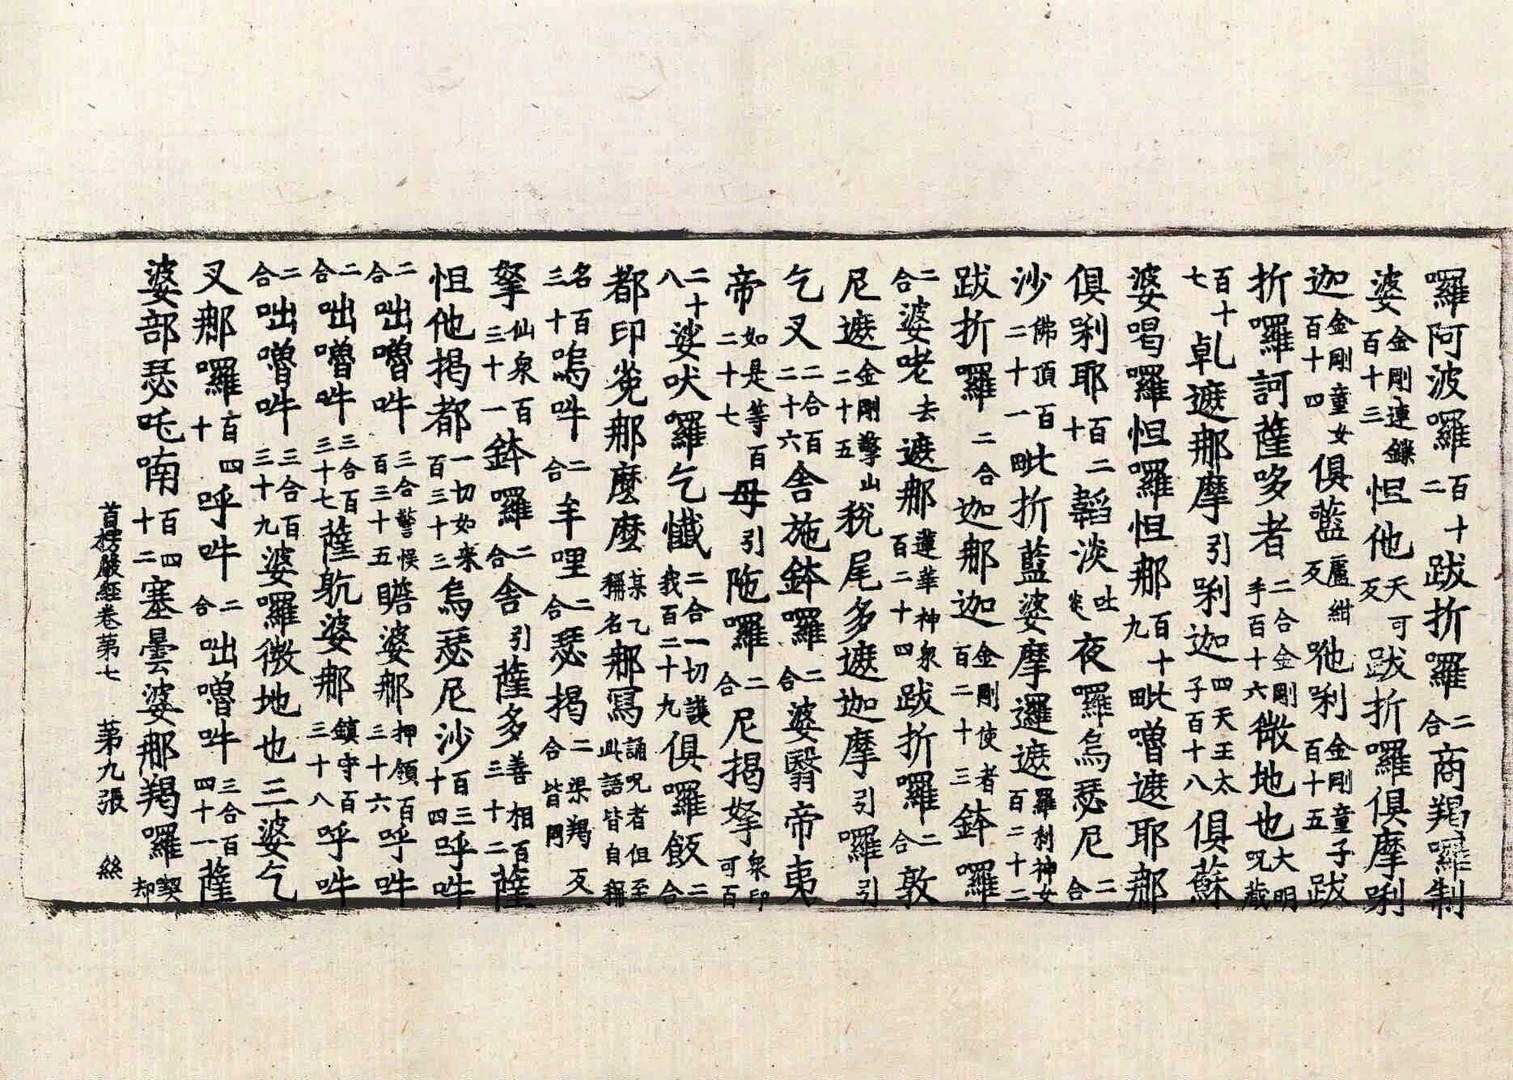 囉阿波囉百十二跋折囉二合商羯囉制
婆金剛連鏁百十三怛他天可反跋折囉俱摩唎
迦金剛童女百十四俱藍盧紺反唎金剛童子百十五跋
折囉訶薩哆者二合金剛手百十六微地也大明呪藏
百十七乹遮那摩引唎迦四天王太子百十八俱蘇
婆喝囉怛囉怛那百十九毗嚕遮耶那
俱唎耶百二十韜淡吐炎夜囉烏瑟尼二合
沙佛頂百二十一毗折藍婆摩邏遮羅剎神女百二十二
跋折囉二合迦那迦金剛使者百二十三鉢囉
二合婆咾去遮那蓮華神衆百二十四跋折囉二合敦
尼遮金剛擊山二十五稅尾多遮迦摩引囉引
乞叉二合百二十六舍施鉢囉二合婆翳帝夷
帝如是等百二十七母引陁囉二合尼揭拏衆印可百
二十八娑吠囉乞懺二合一切護我百二十九俱囉飯二合
都印㝹那麼麼某乙稱名那寫誦呪者但至此語皆自稱
名百三十嗚吽二合牟哩二合瑟揭二合渠羯反皆同
拏仙衆百三十一鉢囉二合舍引薩多善相百三十二薩
怛他揭都一切如來百三十三烏瑟尼沙百三十四呼吽
二合咄嚕吽三合警候百三十五瞻婆那押領百三十六呼吽
二合咄嚕吽三合百三十七薩躭婆那鎮守百三十八呼吽
二合咄嚕吽三合百三十九婆囉微地也三婆乞
叉那囉百四十呼吽二合咄嚕吽三合百四十一薩
婆部瑟吒喃百四十二塞曇婆那羯囉契却
首楞嚴經卷第七 第九張 絲